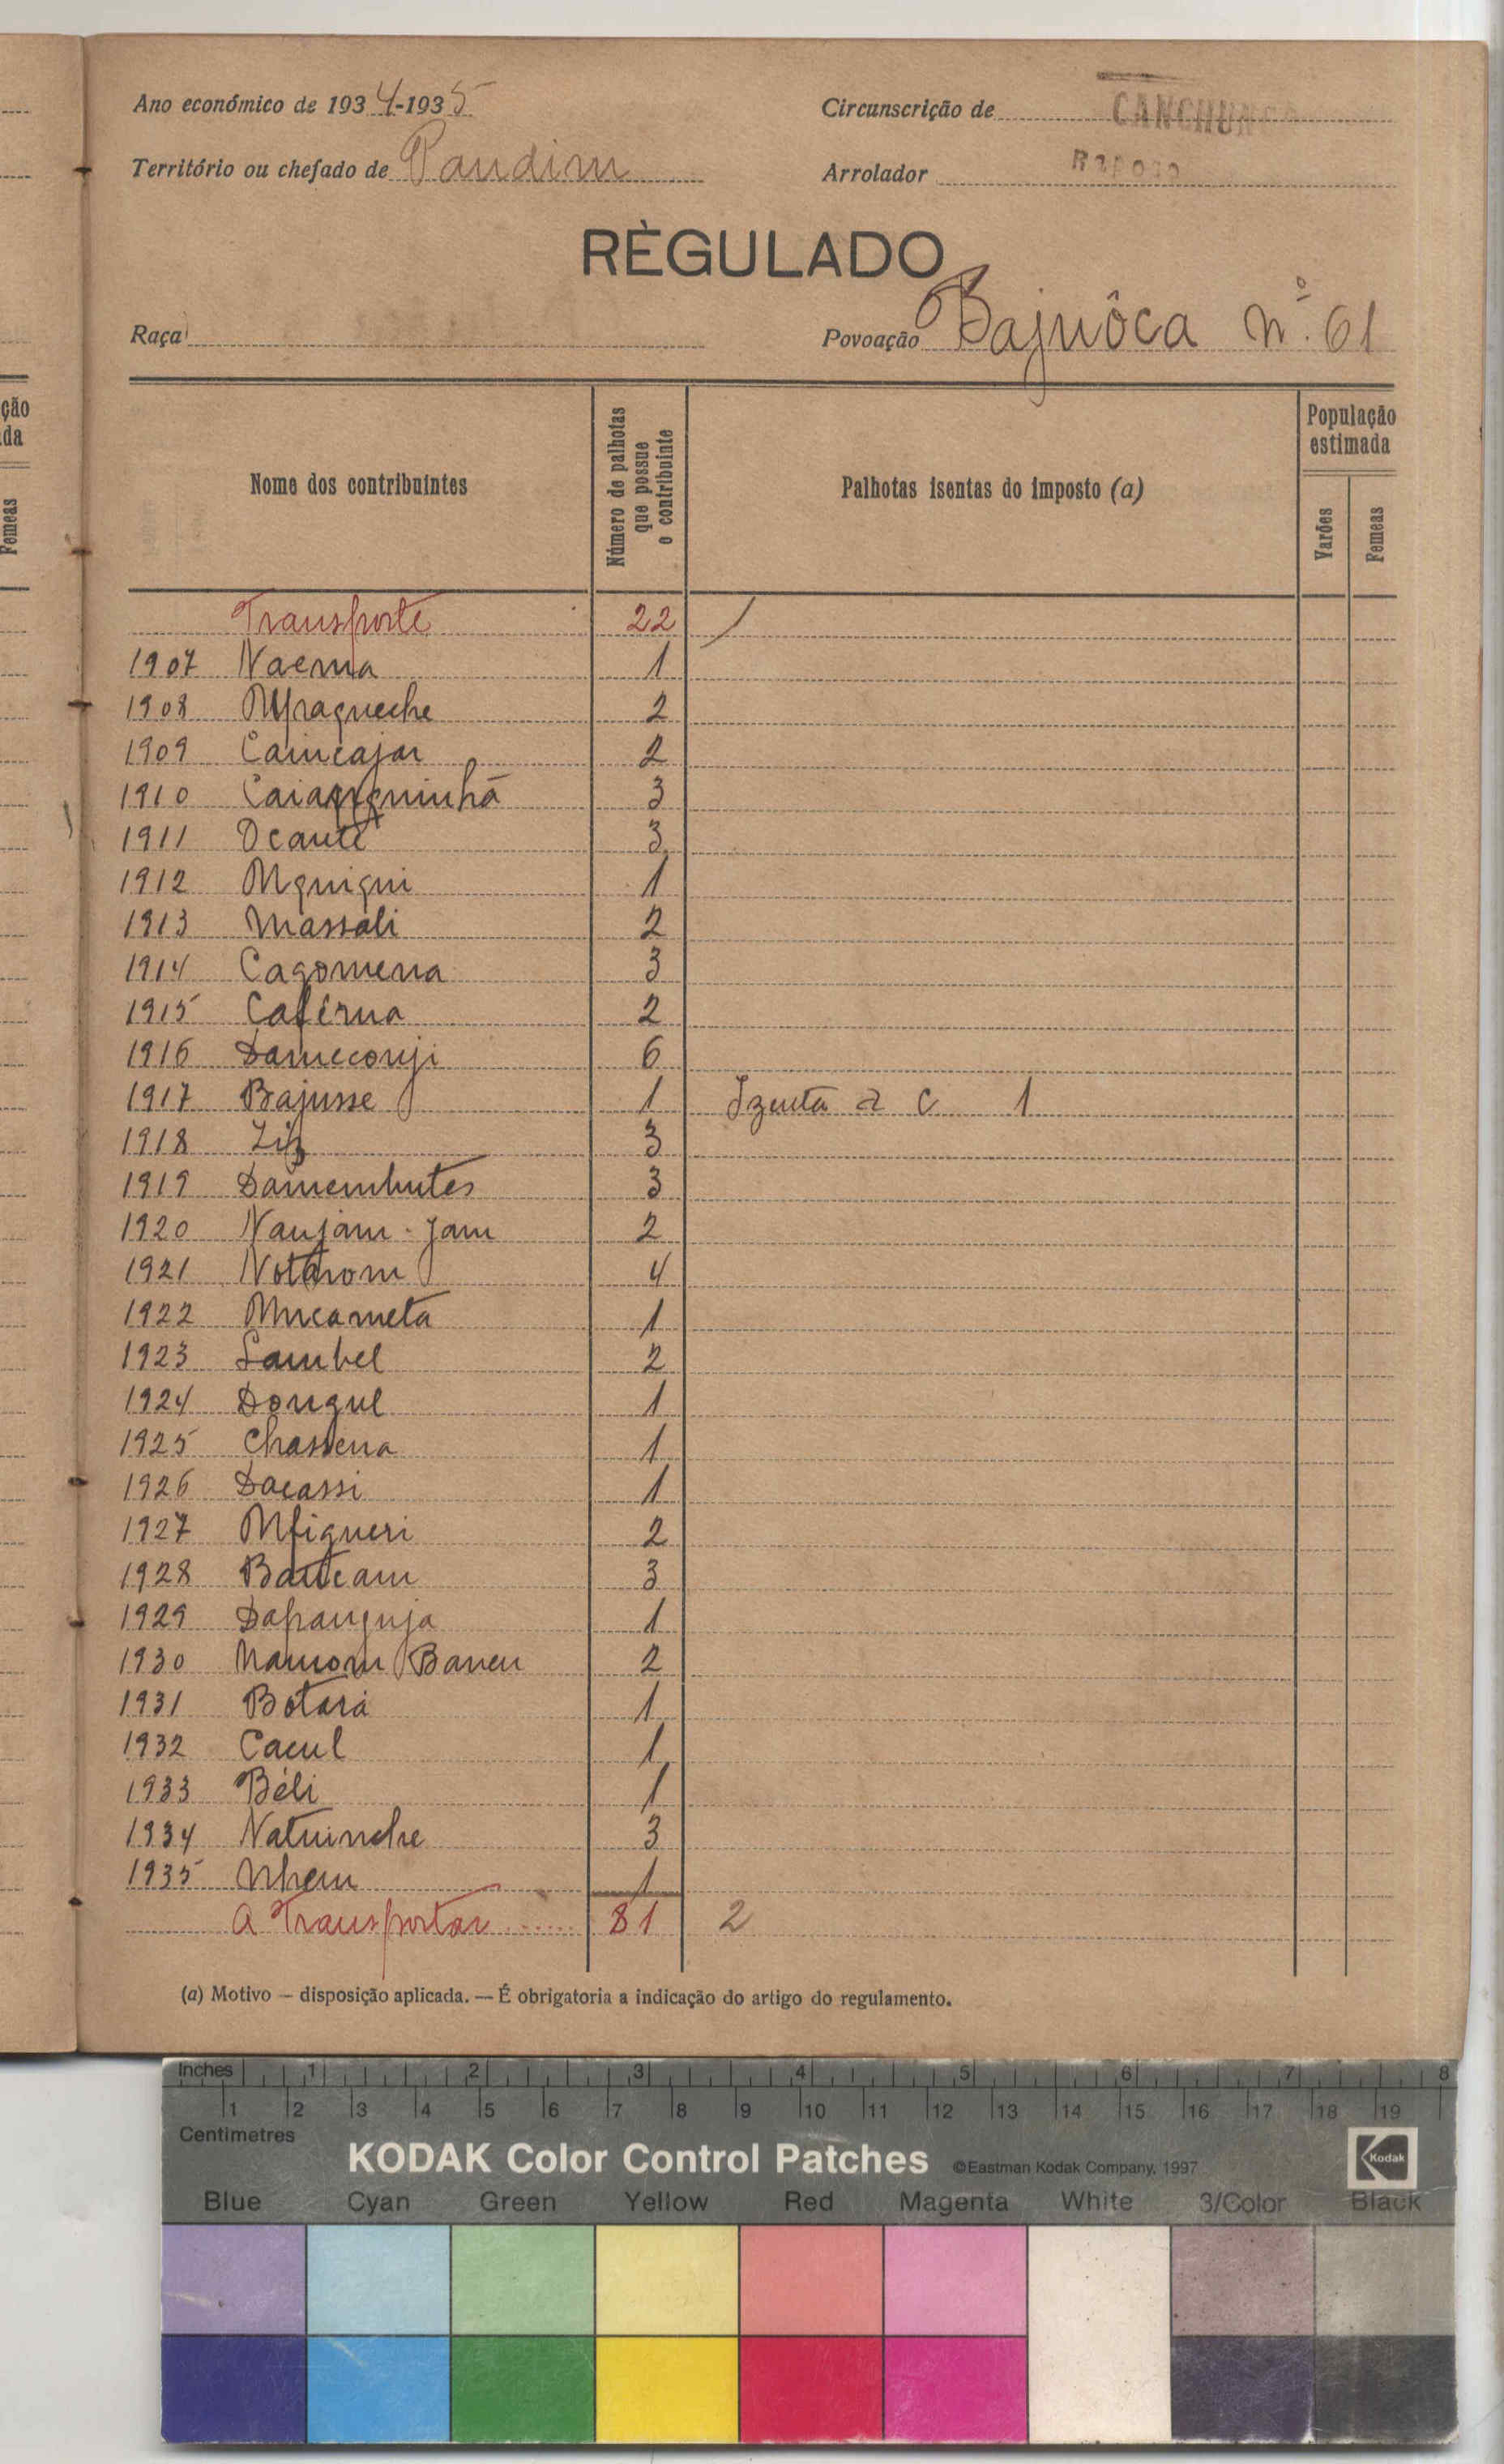 Ano económico de 1934-1935
Circunscrição de CANCHUNGO
Território ou chefado de Pandim
Arrolador Raposo
RÈGULADO
Raça
Povoação Bajuôca nº. 61
ção
da
Femeas
Nome dos contribuintes
Número de palhotas que possue o contribuinte
Palhotas isentas do imposto (a)
População estimada
Varões
Femeas
Transporte 22 1
1907 Naema 1
1908 Mpraqueche 2
1909 Caincajar 2
1910 3
1911 Ocante 3
1912 Mquiqui 1
1913 Massali 2
1914 Cagomena 3
1915 Caférna 2
1916 Dameconji 6
1917 Bajusse 1 Izenta a c 1
1918 Liz 3
1919 Damembutes 3
1920 Naujam-Jam 2
1921 Notarom 4
1922 Mucameta 1
1923 Sambel 2
1924 Dongul 1
1925 Chassena 1
1926 Dacassi 1
1927 Mfigueri 2
1928 Batican 3
1929 Dapranguja 1
1930 Namom Baneu 2
1931 Botará 1
1932 Cacul 1
1933 Béli 1
1934 Natuinche 3
1935 Nhem 1
A Transportar ...... 81 2
(a) Motivo — disposição aplicada. — É obrigatoria a indicação do artigo do regulamento.
Inches 1 2 3 4 5 6 7 8
1 2 3 4 5 6 7 8 9 10 11 12 13 14 15 16 17 18 19
Centimetres
KODAK Color Control Patches ©Eastman Kodak Company, 1997 Kodak
Blue Cyan Green Yellow Red Magenta White 3/Color Black